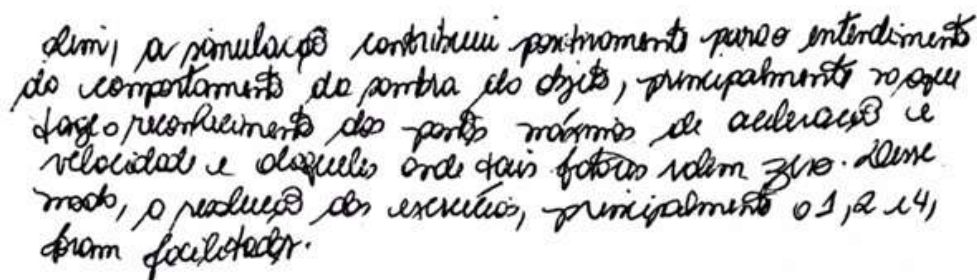 Sim, a simulação contribuiu positivamente para o entendimento
do comportamento da sombra do objeto, principalmente no que
tange o reconhecimento dos pontos máximos de aceleração e
velocidade e daqueles onde tais fatores valem zero. Desse
modo, a resolução dos exercícios, principalmente o 1, 2 e 4,
foram facilitados.